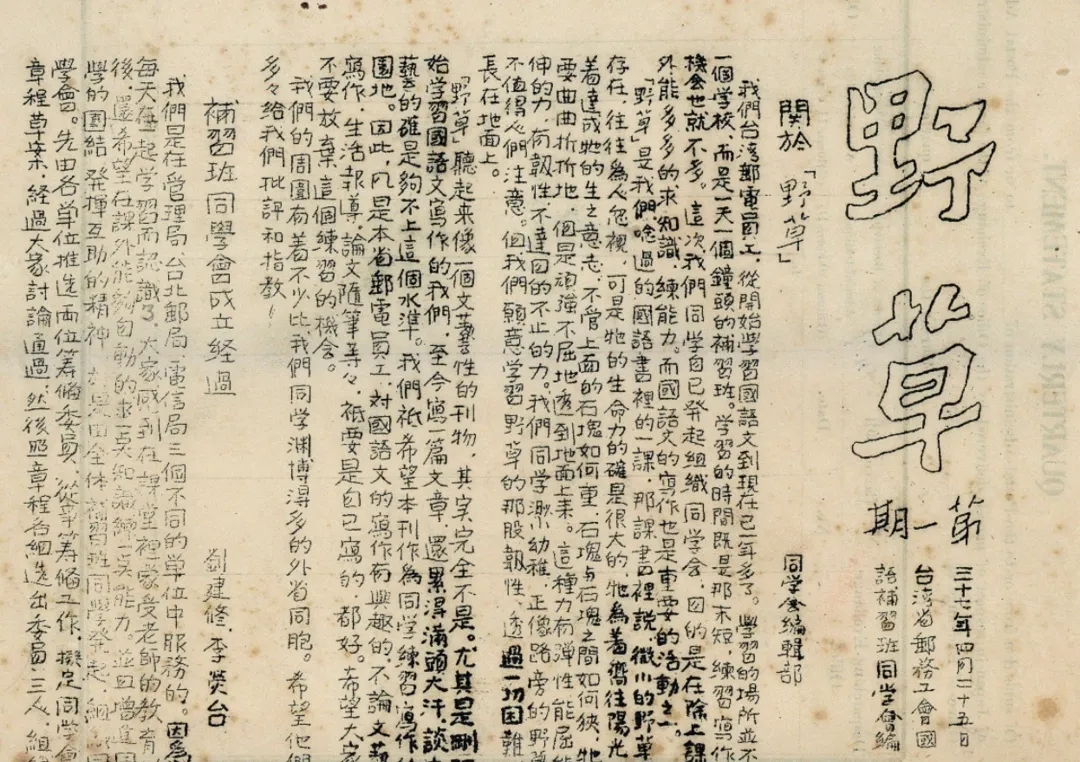 野草
第一期
三十七年四月二十五日
台湾省郵務工會國
語補習班同學會編
關於「野草」
同学会編輯部
我們台湾郵電員工，從開始學習國語文到現在已一年多了。學習的場所並不
一個学校，而是一天一個鐘頭的補習班。学習的時間既是那末短，練習寫作
機會也就不多。這次我們同学自已発起組織同学会，目的是在除上課
外能多多的求知識，練能力。而國語文的寫作也是重要的活動之一。
「野草」是我們唸過的國語書裡的一課，那課書裡説，微小的野草
存在，往往為人忽視，可是牠的生命力的確是很大的，牠為着嚮往陽光
着達成牠的生之意志，不管上面的石塊如何重，石塊与石塊之間如何狹，牠
要曲曲折折地，但是頑強不屈地透到地面上来。這種力有弾性能屈能
伸的力，有韌性，不達目的不止的力。我們同学渺小幼稚，正像路旁的野草
不值得人們注意。但我們願意学習野草的那股韌性，透過一切困難
長在地面上。
「野草」聽起来像一個文藝性的刊物，其实完全不是。尤其是剛
始学習國語文寫作的我們，至今寫一篇文章，還累得滿頭大汗，談
藝的確是夠不上這個水準。我們祗希望本刊作為同学練習寫作
園地。因此，凡是本省郵電員工，対國語文的寫作有興趣的，不論文藝
寫作，生活報導，論文隨筆等々，祗要是自已寫的，都好。希望大家
不要放棄這個練習的機会。
我們的周圍有着不少比我們同学淵博得多的外省同胞。希望他們
多々給我們批評和指教！
補習班同學會成立経過
劉建修、李熒台
我們是在管理局、台北郵局、電信局三個不同的單位中服務的。因為
每天在一起学習而認識了。大家感到在課堂裡受老師的教育
後，還希望在課外能夠自動的求一点知識練一点能力。並且增進同
學的團結，発揮互助的精神，於是由全体補習班同學発起，組織同
學會。先由各單位推选两位籌備委員，從事籌備工作，擬定同學會
章程草案，経過大家討論通過，然後照章程各組选出委員三人，組